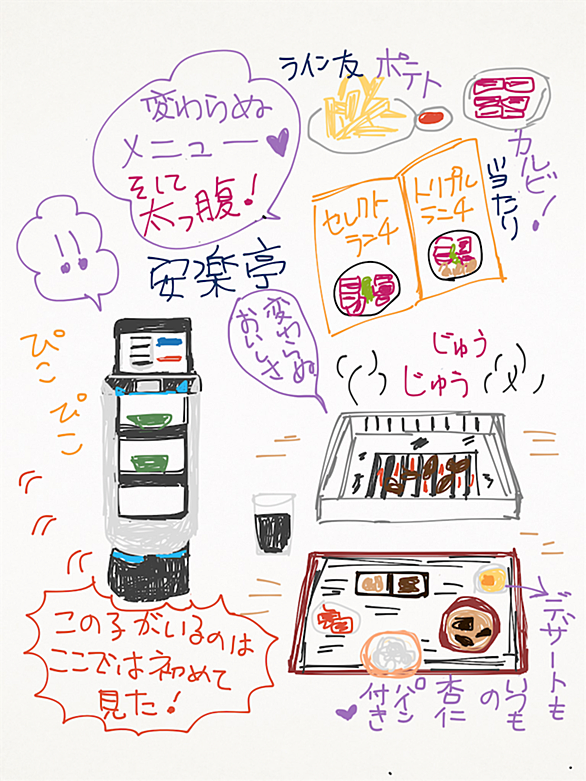 ライン友 ポテト
カルビ!
当たり
変わらぬ
メニュー
そして
太っ腹!
!!
安楽亭
セレクト
ランチ
トリプル
ランチ
変わらぬ
おいしさ
ぴこ
ぴこ
じゅう
じゅう
この子がいるのは
ここでは初めて
見た!
デザートも
いつも
の
杏仁
パイン
付き